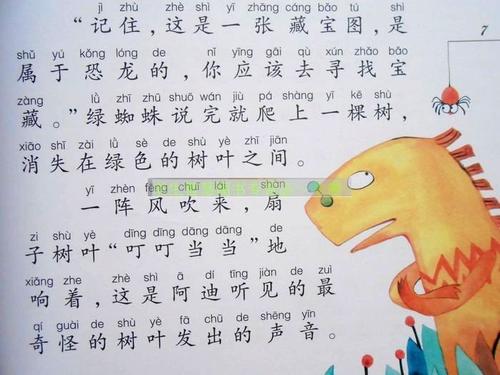 jì zhù zhè shì yī zhāng cáng bǎo tú shì
“记住，这是一张藏宝图，是
7
shǔ yú kǒng lóng de nǐ yīng gāi qù xún zhǎo bǎo
属于恐龙的，你应该去寻找宝
zàng lǜ zhī zhū shuō wán jiù pá shàng yī kē shù
藏。”绿蜘蛛说完就爬上一棵树，
xiāo shī zài lǜ sè de shù yè zhī jiān
消失在绿色的树叶之间。
yī zhèn fēng chuī lái shàn
一阵风吹来，扇
zi shù yè dīng dīng dāng dāng de
子树叶“叮叮当当”地
xiǎng zhe zhè shì ā dí tīng jiàn de zuì
响着，这是阿迪听见的最
qí guài de shù yè fā chū de shēng yīn
奇怪的树叶发出的声音。